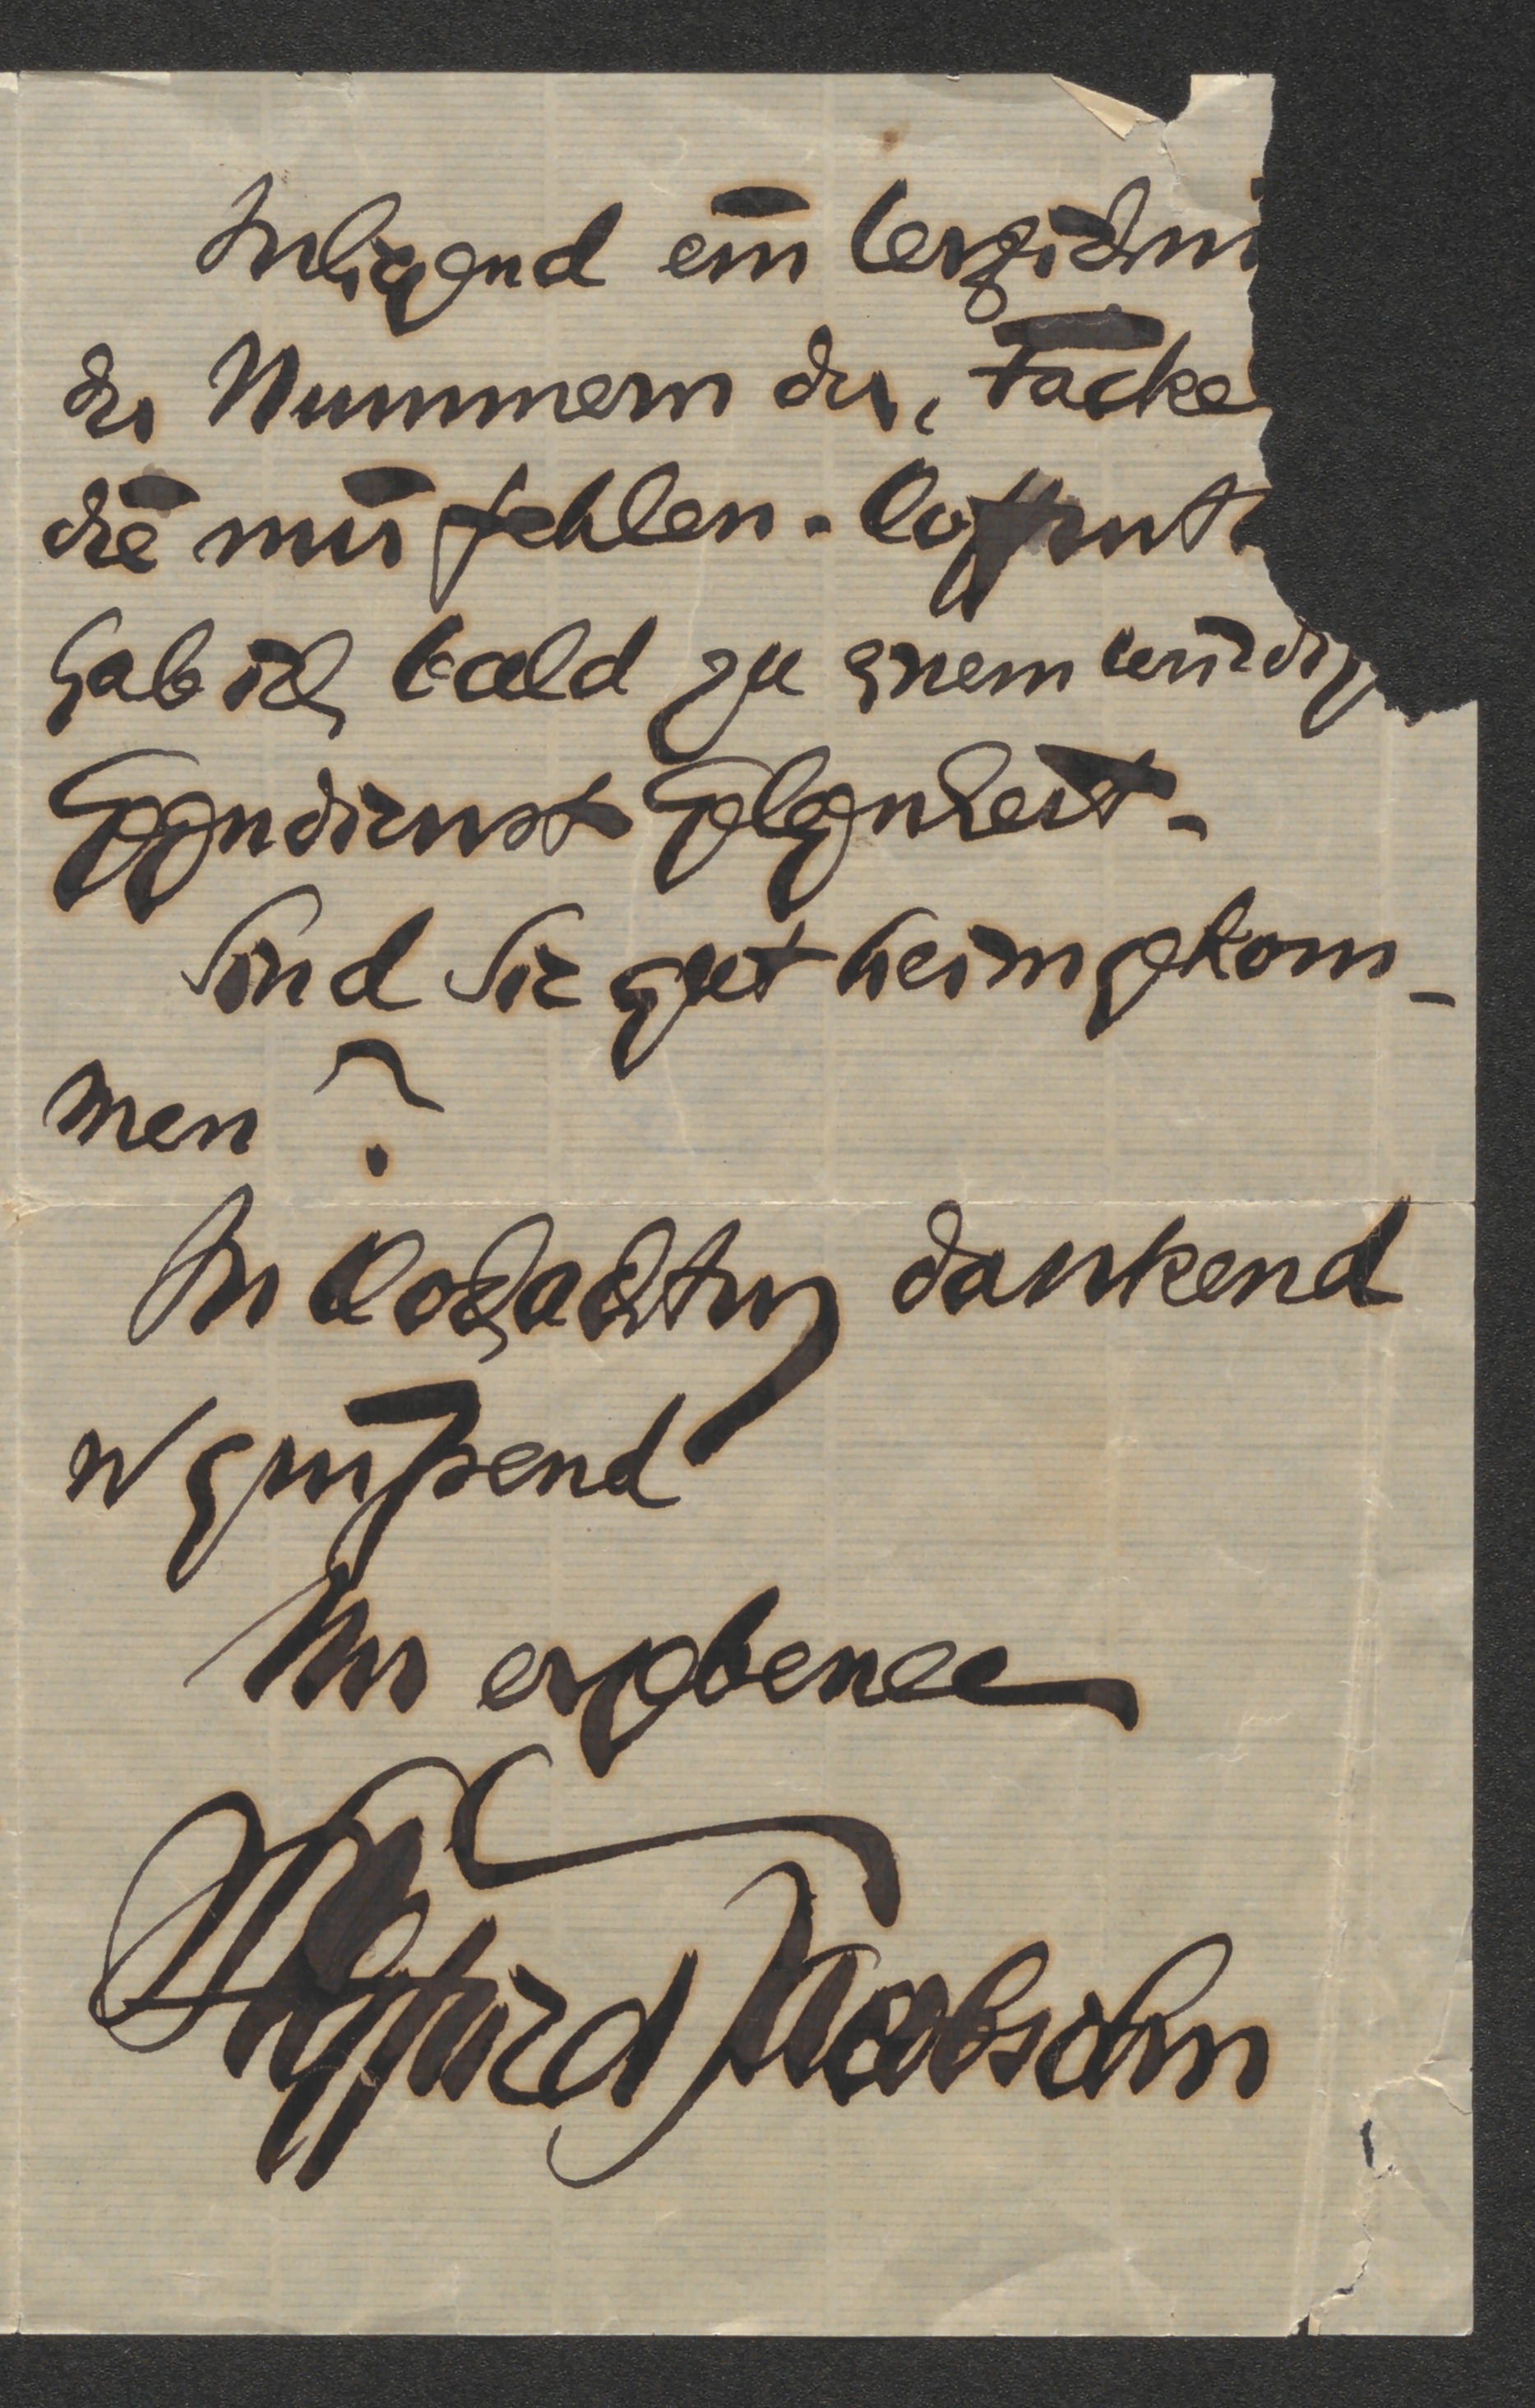 Inliegend ein Verzeichni
der Nummern der „Facke
die mir fehlen. Hoffentl
hab ich bald zu einem würdig
Gegendienst Gelegenheit.
Sind Sie gut heimgekom-
men?
In Hochachtung dankend
u grüßend
Ihr ergebener
Siegfried Jacobsohn